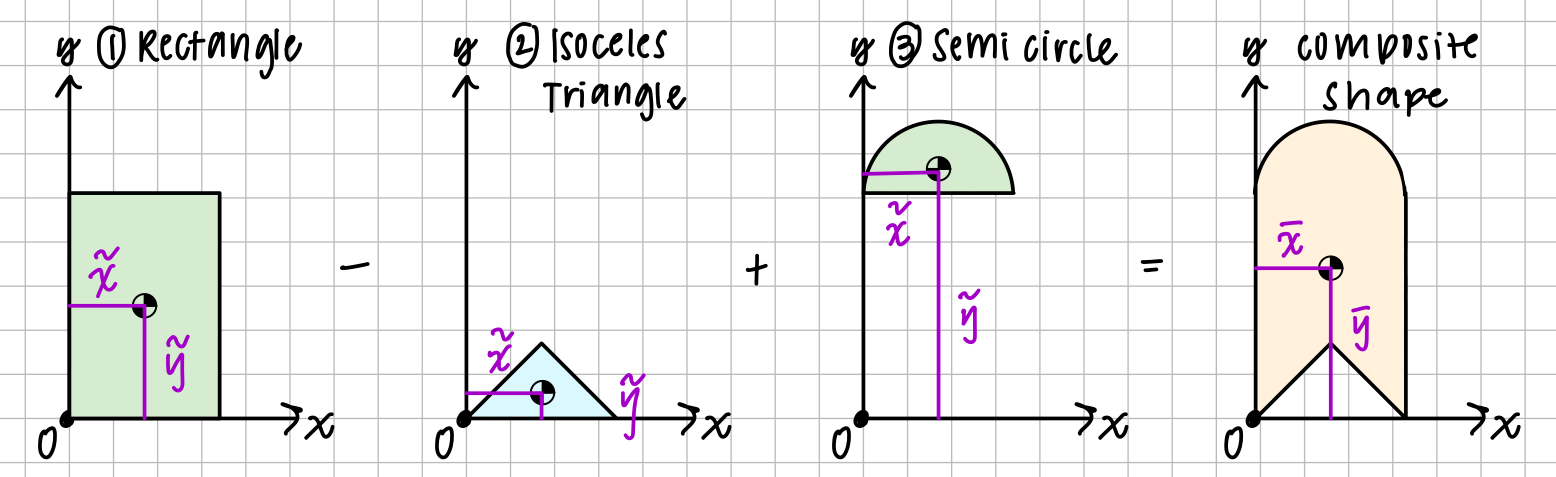 y ① Rectangle
x̃
ỹ
0
x
-
y ② Isoceles
Triangle
x̃
ỹ
0
x
+
y ③ Semi circle
x̃
ỹ
0
x
=
y composite
shape
x̅
y̅
0
x